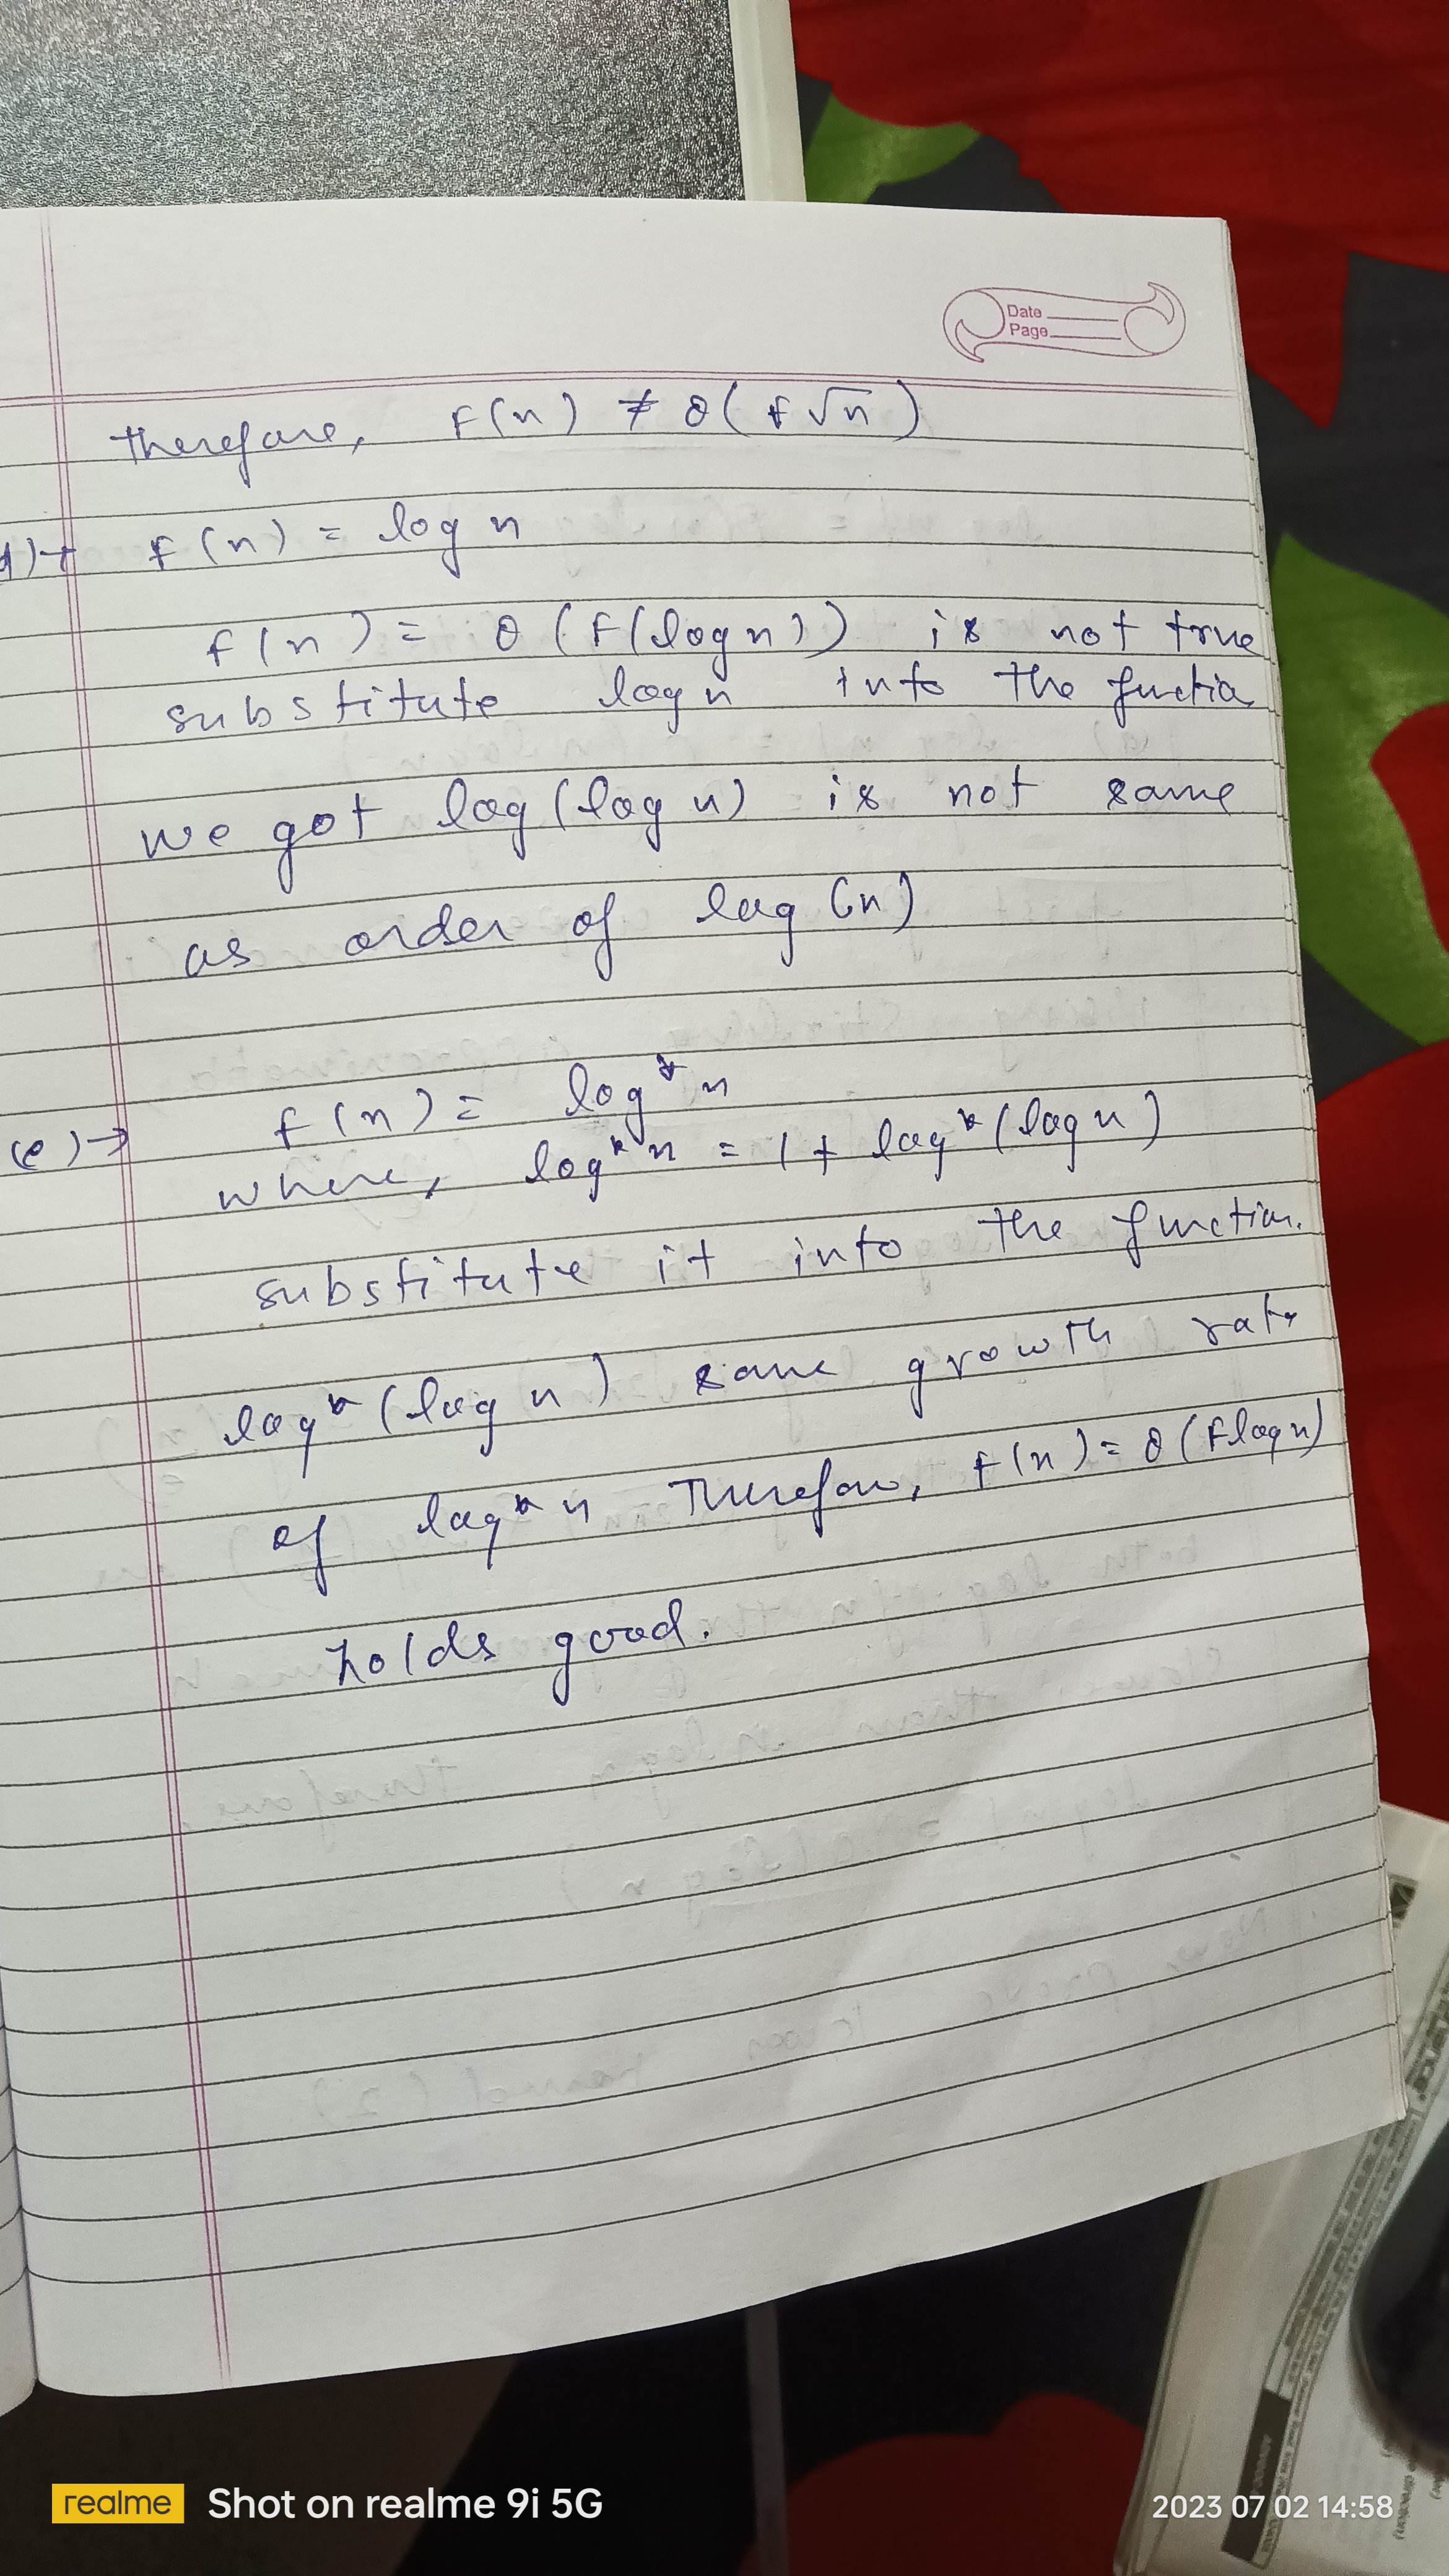 Date
Page
therefore, F(n) ≠ θ(f√n)
d)→ f(n) = log n
f(n) = θ(F(log n)) is not true
substitute log n into the functio
we got log(log n) is not same
as order of log(n)
(e)→ f(n) = log* n
where, log* n = 1 + log*(log n)
substitute it into the function.
log*(log n) same growth rate
of log* n Therefore, f(n) = θ(F log n)
holds good.
realme Shot on realme 9i 5G
2023 07 02 14:58